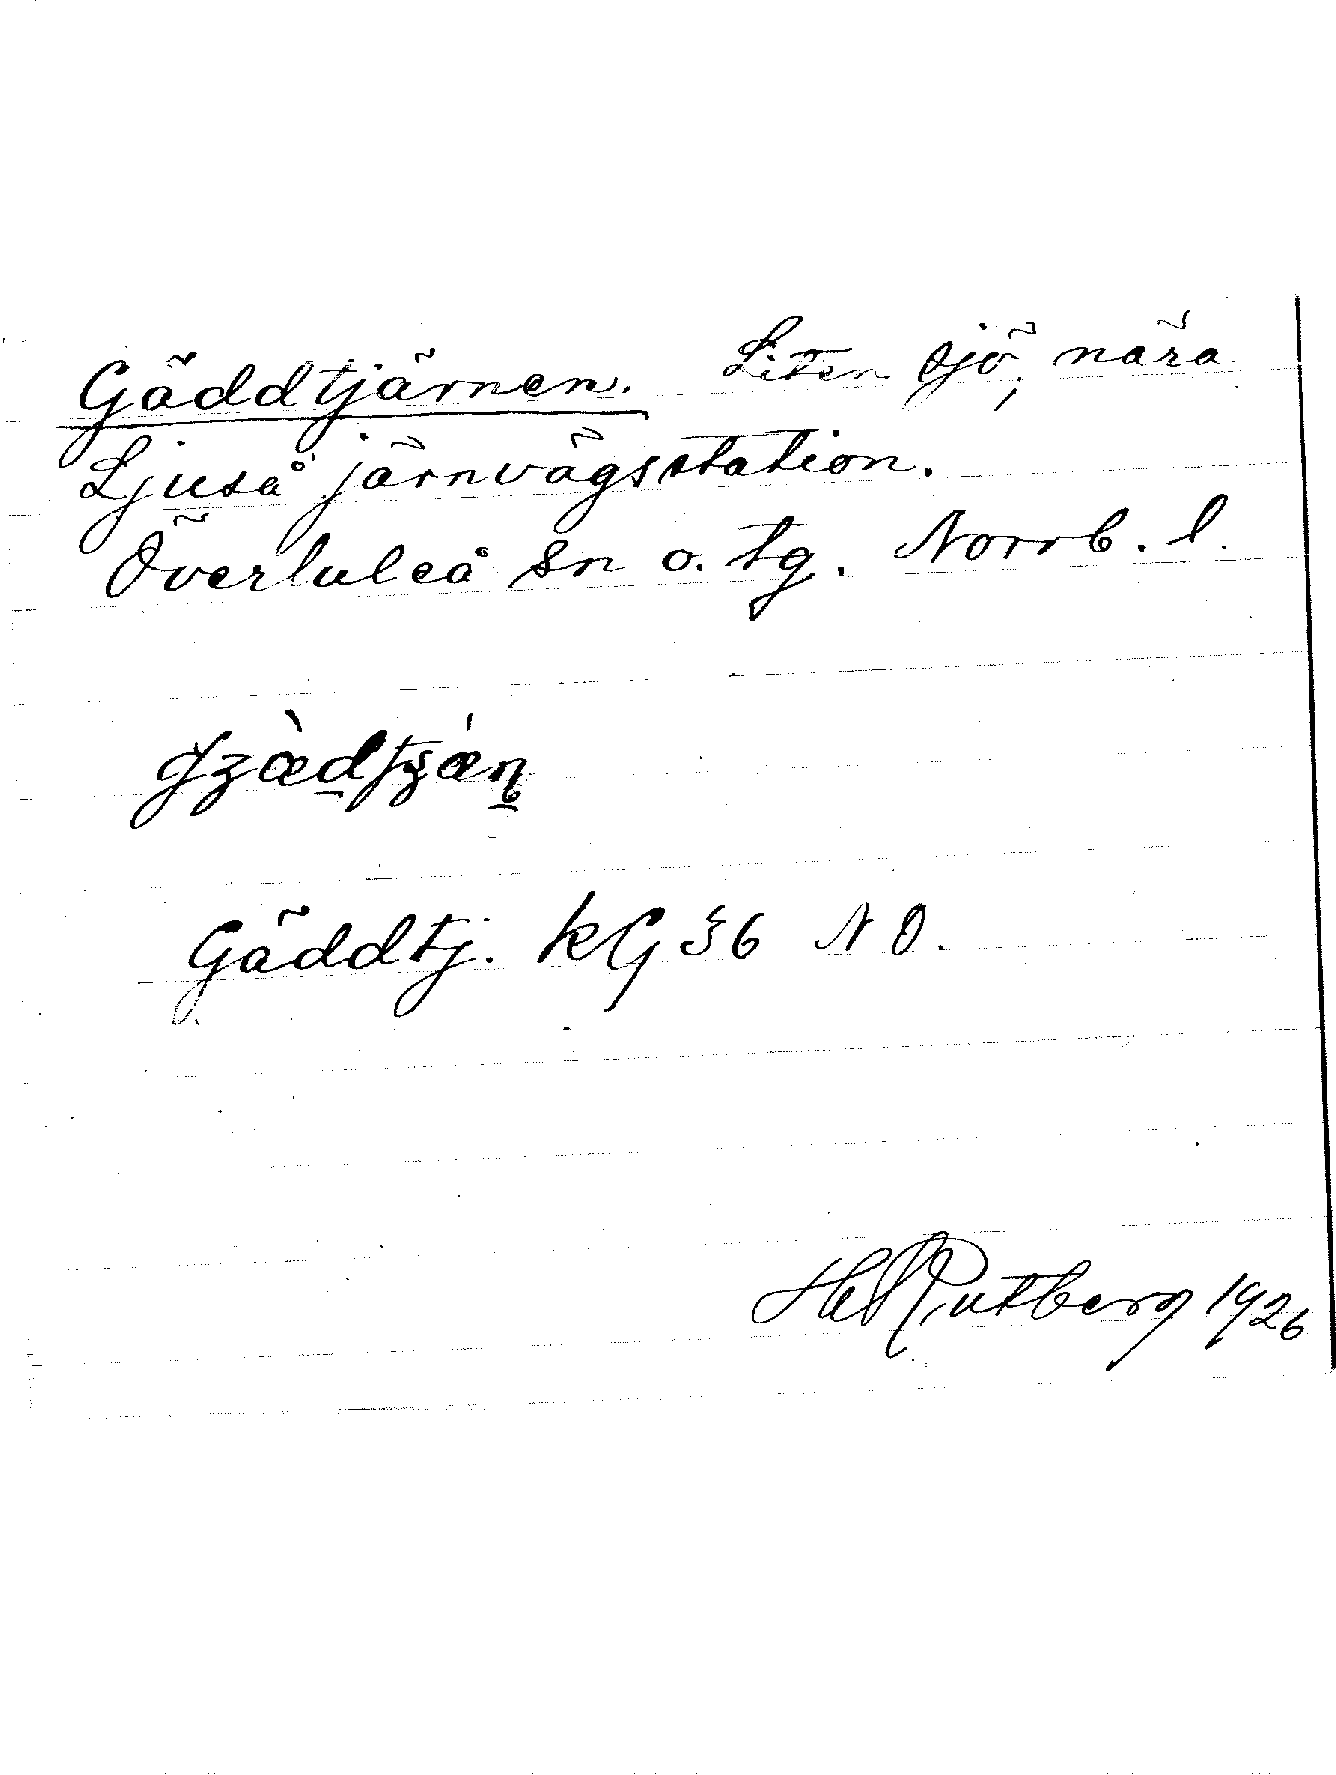 Gäddtjärnen. Liten sjö, nära
Ljuså järnvägsstation.
Överluleå sn o. tg. Norrb. l.
Gäddtj. KG 36 NO.
H Rutberg 1926